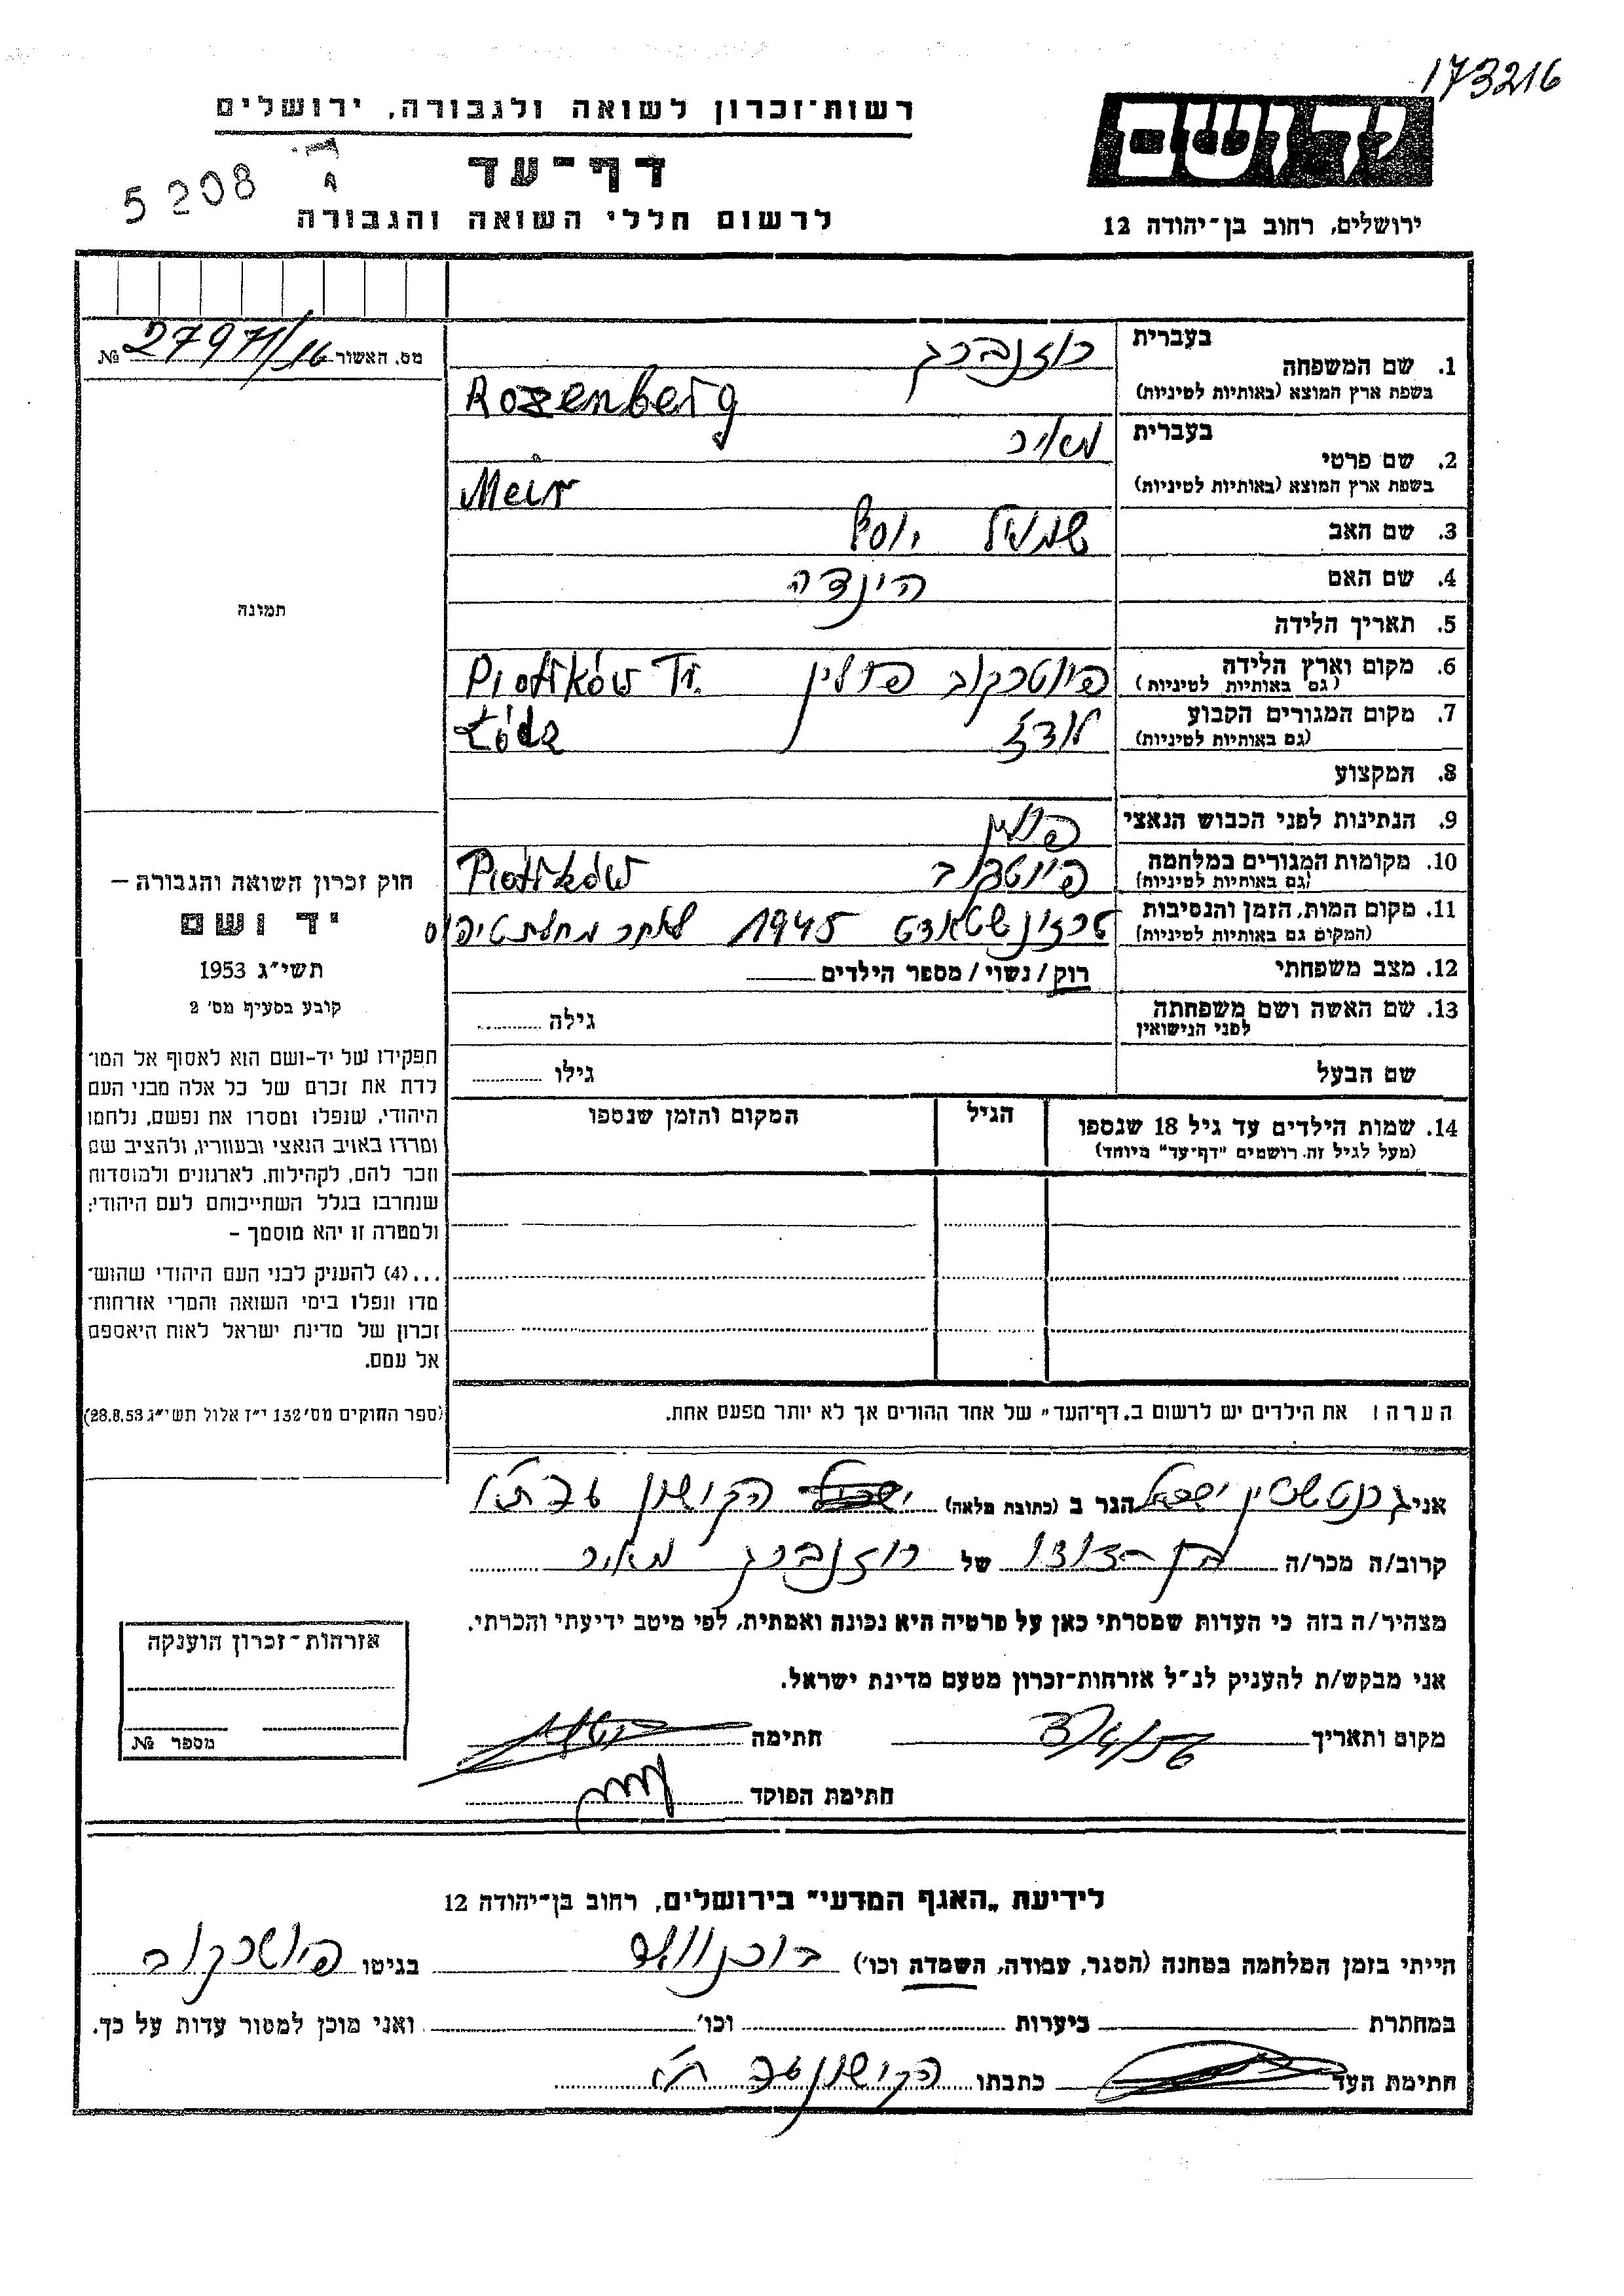 173216
רשות־זכרון לשואה ולגבורה, ירושלים
יד ושם
דף־עד
5208
לרשום חללי השואה והגבורה
ירושלים, רחוב בן־יהודה 12
מס. האשור № 2797/
בעברית רוזנברג
1. שם המשפחה
בשפת ארץ המוצא (באותיות לטיניות) Rozenberg
בעברית מאיר
2. שם פרטי
בשפת ארץ המוצא (באותיות לטיניות) Meir
3. שם האב שמואל יוסף
4. שם האם הינדה
5. תאריך הלידה
6. מקום וארץ הלידה פיוטרקוב פולין Piotrków Tr.
(גם באותיות לטיניות)
7. מקום המגורים הקבוע לודז Łódz
(גם באותיות לטיניות)
8. המקצוע
9. הנתינות לפני הכבוש הנאצי פולין
10. מקומות המגורים במלחמה פיוטרקוב Piotrków
(גם באותיות לטיניות)
11. מקום המות, הזמן והנסיבות טרזינשטאדט 1945 לאחר מחלת טיפוס
(המקום גם באותיות לטיניות)
12. מצב משפחתי רוק / נשוי / מספר הילדים
13. שם האשה ושם משפחתה גילה
לפני הנישואין
שם הבעל גילו
14. שמות הילדים עד גיל 18 שנספו הגיל המקום והזמן שנספו
(מעל לגיל זה רושמים "דף־עד" מיוחד)
תמונה
חוק זכרון השואה והגבורה –
יד ושם
תשי"ג 1953
קובע בסעיף מס' 2
תפקידו של יד-ושם הוא לאסוף אל המו־
לדת את זכרם של כל אלה מבני העם
היהודי, שנפלו ומסרו את נפשם, נלחמו
ומרדו באויב הנאצי ובעוזריו, ולהציב שם
וזכר להם, לקהילות, לארגונים ולמוסדות
שנחרבו בגלל השתייכותם לעם היהודי;
ולמטרה זו יהא מוסמך –
...(4) להעניק לבני העם היהודי שהוש־
מדו ונפלו בימי השואה והמרי אזרחות־
זכרון של מדינת ישראל לאות היאספם
אל עמם.
(ספר החוקים מס' 132 י"ז אלול תשי"ג 28.8.53)
הערה: את הילדים יש לרשום ב"דף־העד" של אחד ההורים אך לא יותר מפעם אחת.
אני ישראל הגר ב (כתובת מלאה) הקישון
קרוב/ה מכר/ה בן דודו של רוזנברג מאיר
מצהיר/ה בזה כי העדות שמסרתי כאן על פרטיה היא נכונה ואמתית, לפי מיטב ידיעתי והכרתי.
אני מבקש/ת להעניק לנ"ל אזרחות־זכרון מטעם מדינת ישראל.
מקום ותאריך חתימה
חתימת הפוקד
אזרחות־זכרון הוענקה
מספר №
לידיעת "האגף המדעי" בירושלים, רחוב בן־יהודה 12
הייתי בזמן המלחמה במחנה (הסגר, עבודה, השמדה וכו') בוכנוואלד בגיטו פיוטרקוב
במחתרת ביערות וכו' ואני מוכן למסור עדות על כך.
חתימת העד כתבתו הקישון